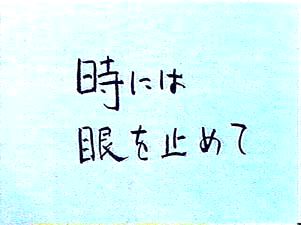 時には
眼を止めて